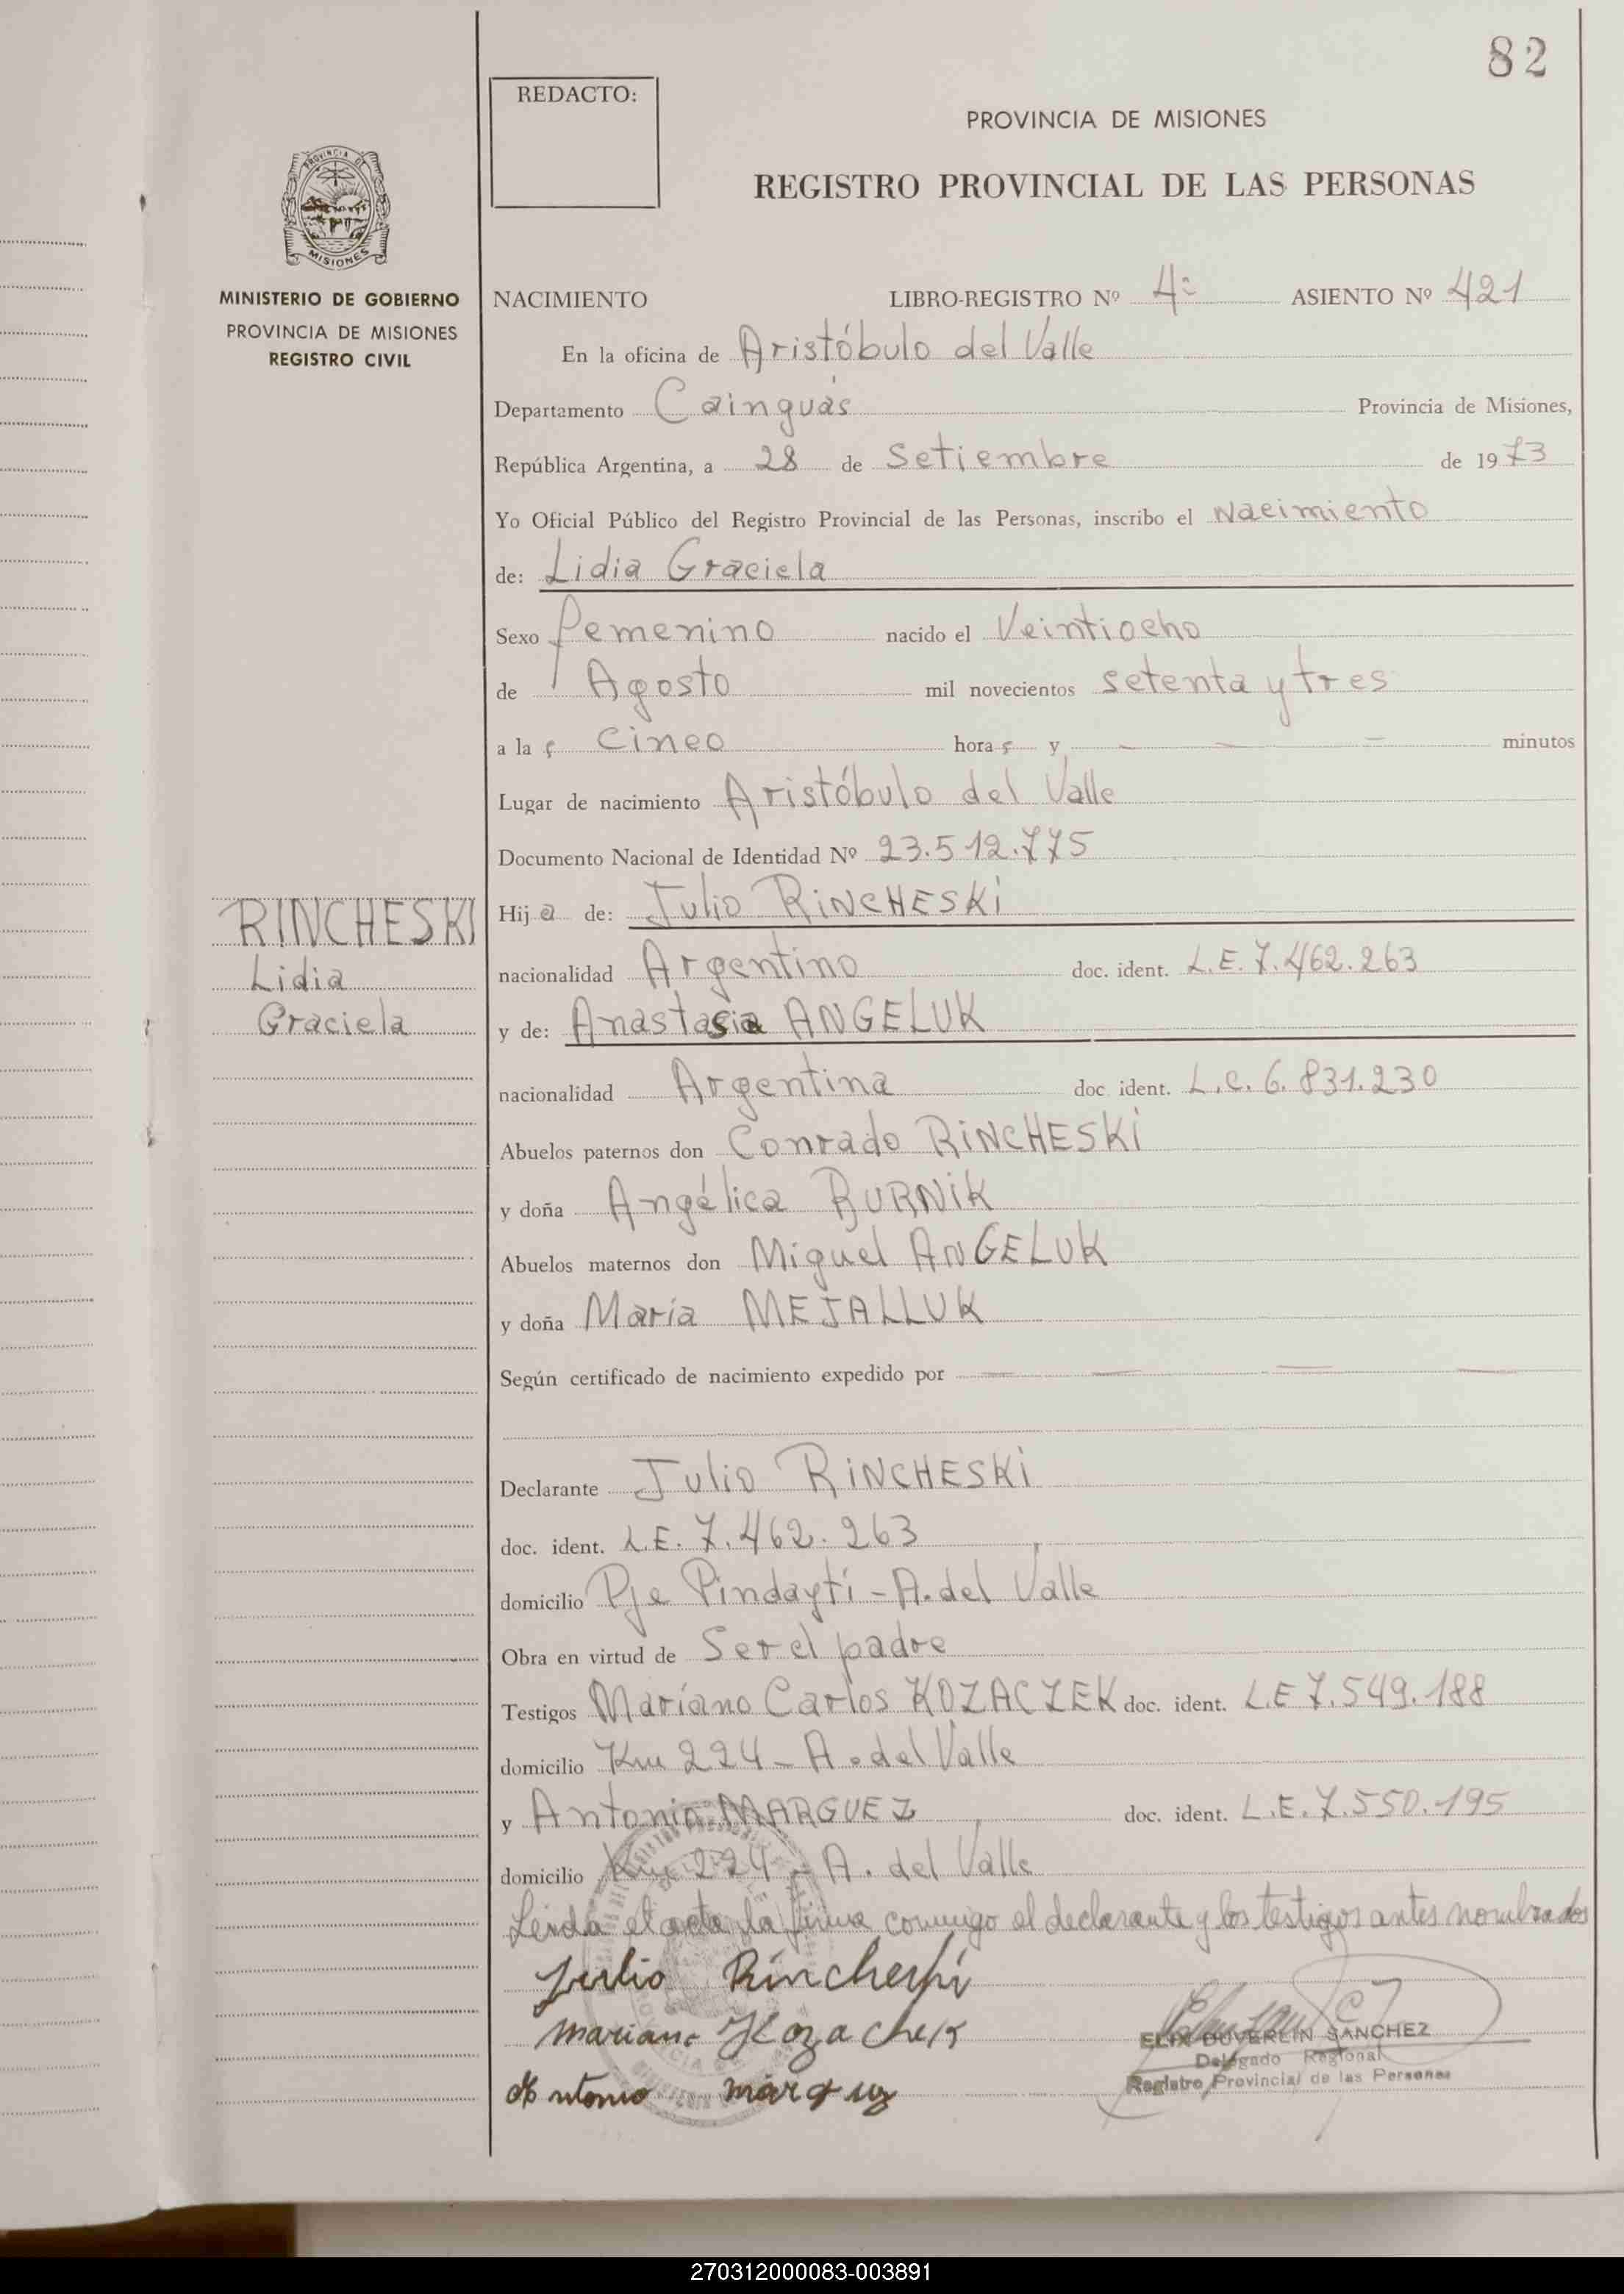 82
REDACTO:
PROVINCIA DE MISIONES
REGISTRO PROVINCIAL DE LAS PERSONAS
PROVINCIA DE
MISIONES
MINISTERIO DE GOBIERNO
PROVINCIA DE MISIONES
REGISTRO CIVIL
NACIMIENTO LIBRO-REGISTRO Nº 4º ASIENTO Nº 421
En la oficina de Aristóbulo del Valle
Departamento Cainguás Provincia de Misiones,
República Argentina, a 28 de Setiembre de 1973
Yo Oficial Público del Registro Provincial de las Personas, inscribo el Nacimiento
de: Lidia Graciela
Sexo femenino nacido el Veintiocho
de Agosto mil novecientos setenta y tres
a la s cinco hora s y — — — minutos
Lugar de nacimiento Aristóbulo del Valle
Documento Nacional de Identidad Nº 23.512.775
RINCHESKI
Lidia
Graciela
Hij a de: Julio RINCHESKI
nacionalidad Argentino doc. ident. L.E. 7.462.263
y de: Anastasia ANGELUK
nacionalidad Argentina doc ident. L.C. 6.831.230
Abuelos paternos don Conrado RINCHESKI
y doña Angélica BURNIK
Abuelos maternos don Miguel ANGELUK
y doña María MEJALLUK
Según certificado de nacimiento expedido por — — — —
Declarante Julio RINCHESKI
doc. ident. L.E. 7.462.263
domicilio Pje Pindaytí - A. del Valle
Obra en virtud de Ser el padre
Testigos Mariano Carlos KOZACZEK doc. ident. L.E 7.549.188
domicilio Km 224 - A. del Valle
y Antonio MARGUEZ doc. ident. L.E. 7.550.195
domicilio Km 224 - A. del Valle
Leida el acta la firma conmigo el declarante y los testigos antes nombrados
Julio Rincheski
Mariano Kozachek
Antonio Marquez
ELIX DUVERLIN SANCHEZ
Delegado Regional
Registro Provincial de las Personas
270312000083-003891